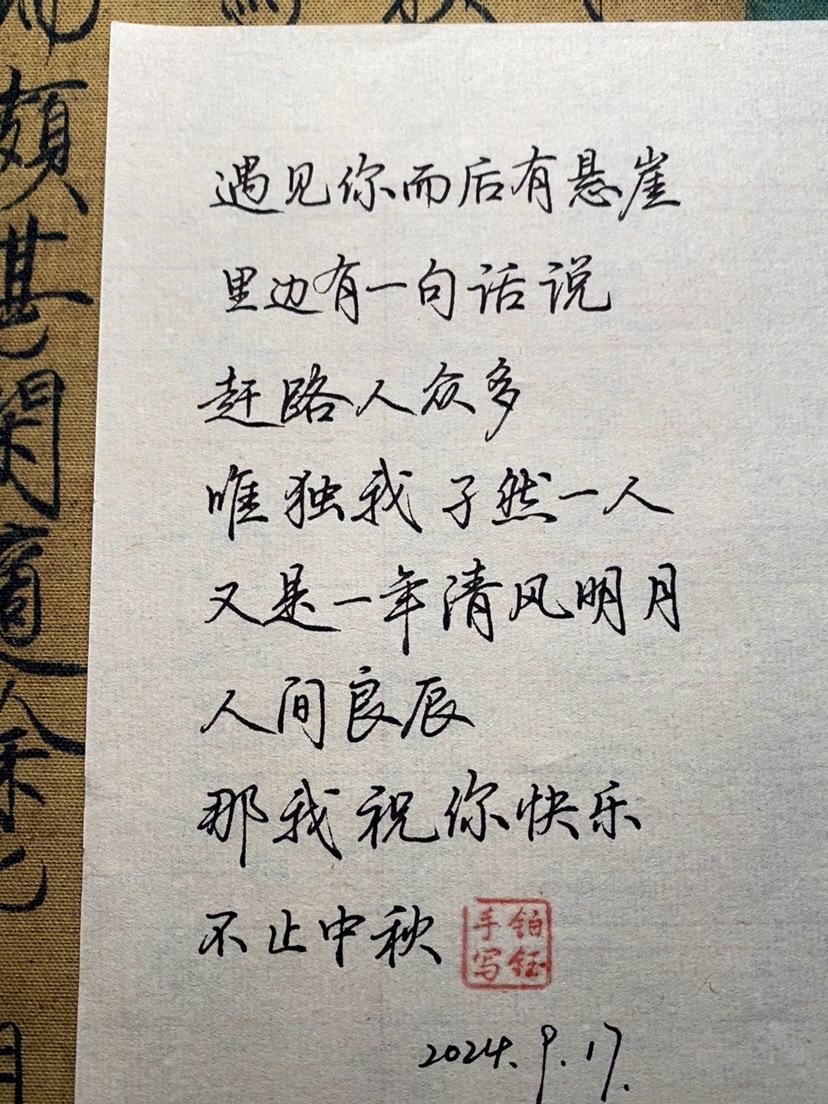 遇见你而后有悬崖
里边有一句话说
赶路人众多
唯独我孑然一人
又是一年清风明月
人间良辰
那我祝你快乐
不止中秋
铂钰
手写
2024.9.17.
頗
甚
閑
適
余